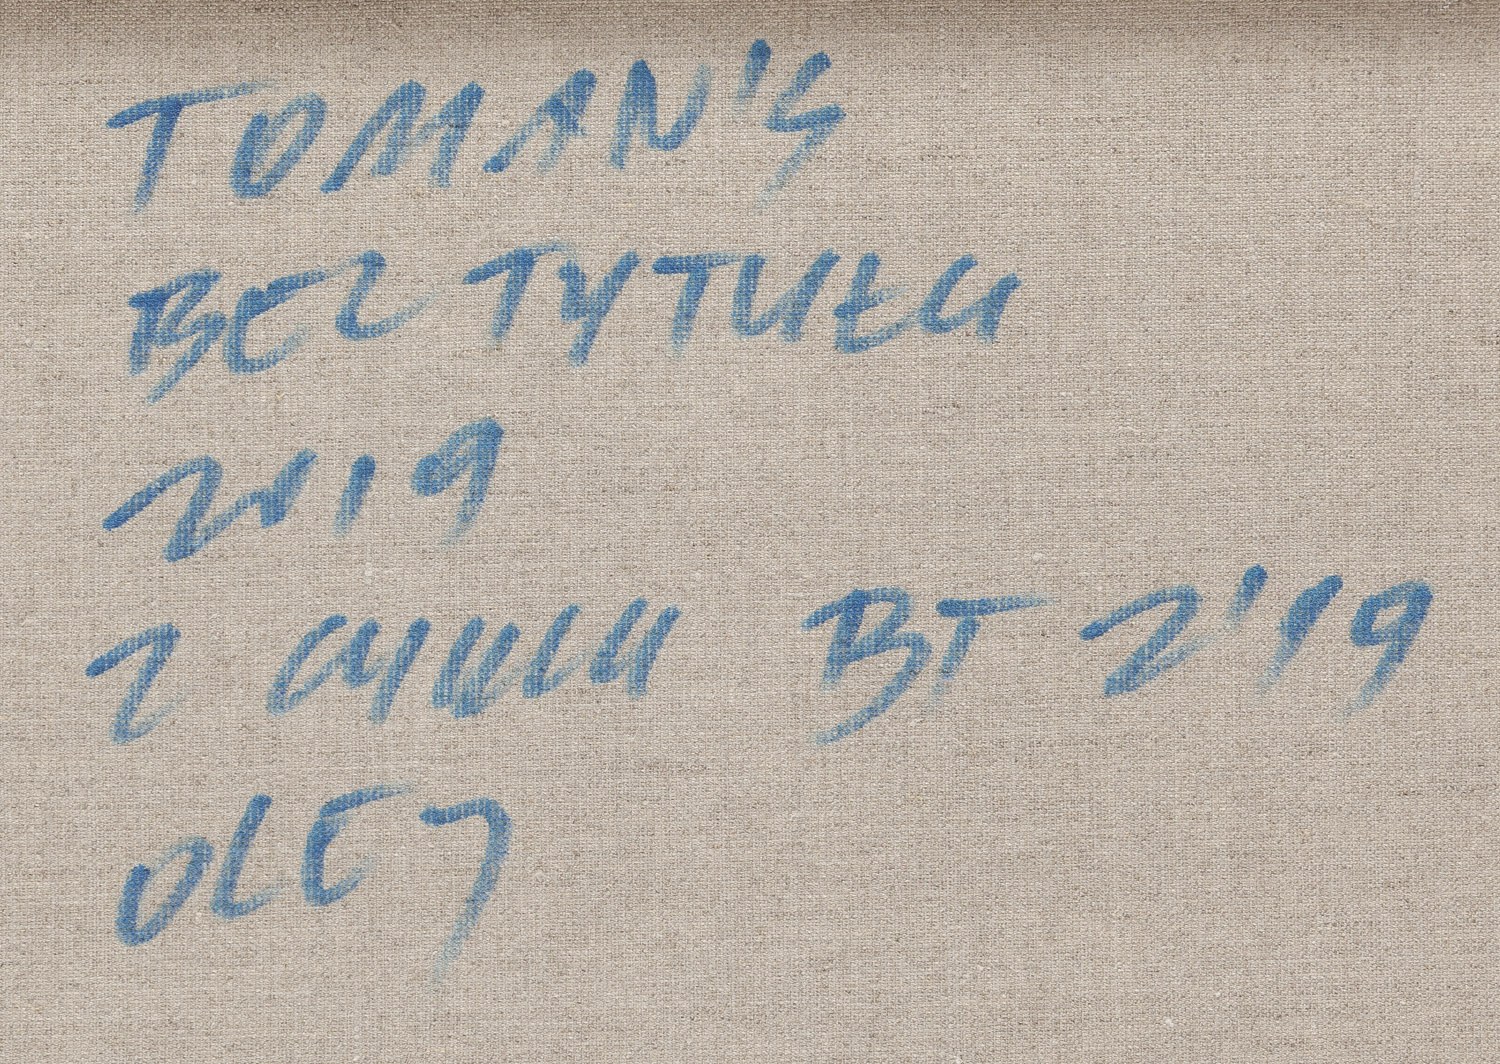 TOMAN'S
BEZ TYTUŁU
2019
Z CYKLU BT 2'19
OLEJ